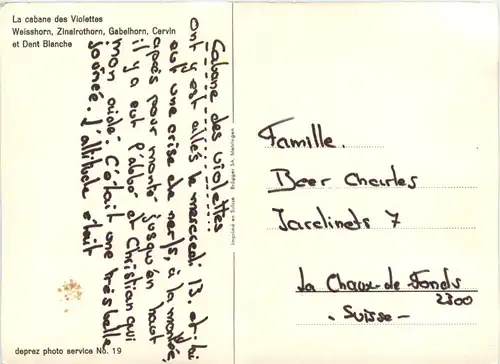 La cabane des Violettes
Weisshorn, Zinalrothorn, Gabelhorn, Cervin
et Dent Blanche
Cabane des violettes
ont y est allés le mercredi 13. et j'ai
eut une crise de nerfs, à la montée,
après pour monté jusqu'en haut
il y a eut l'abbé et Christian qui
mon aidé. C'était une très belle
journée. l'altitude était
Imprimé en Suisse Brügger SA, Meiringen
Famille.
Beer Charles
Jardinets 7
La Chaux-de-Fonds
2300
- Suisse -
deprez photo service No. 19